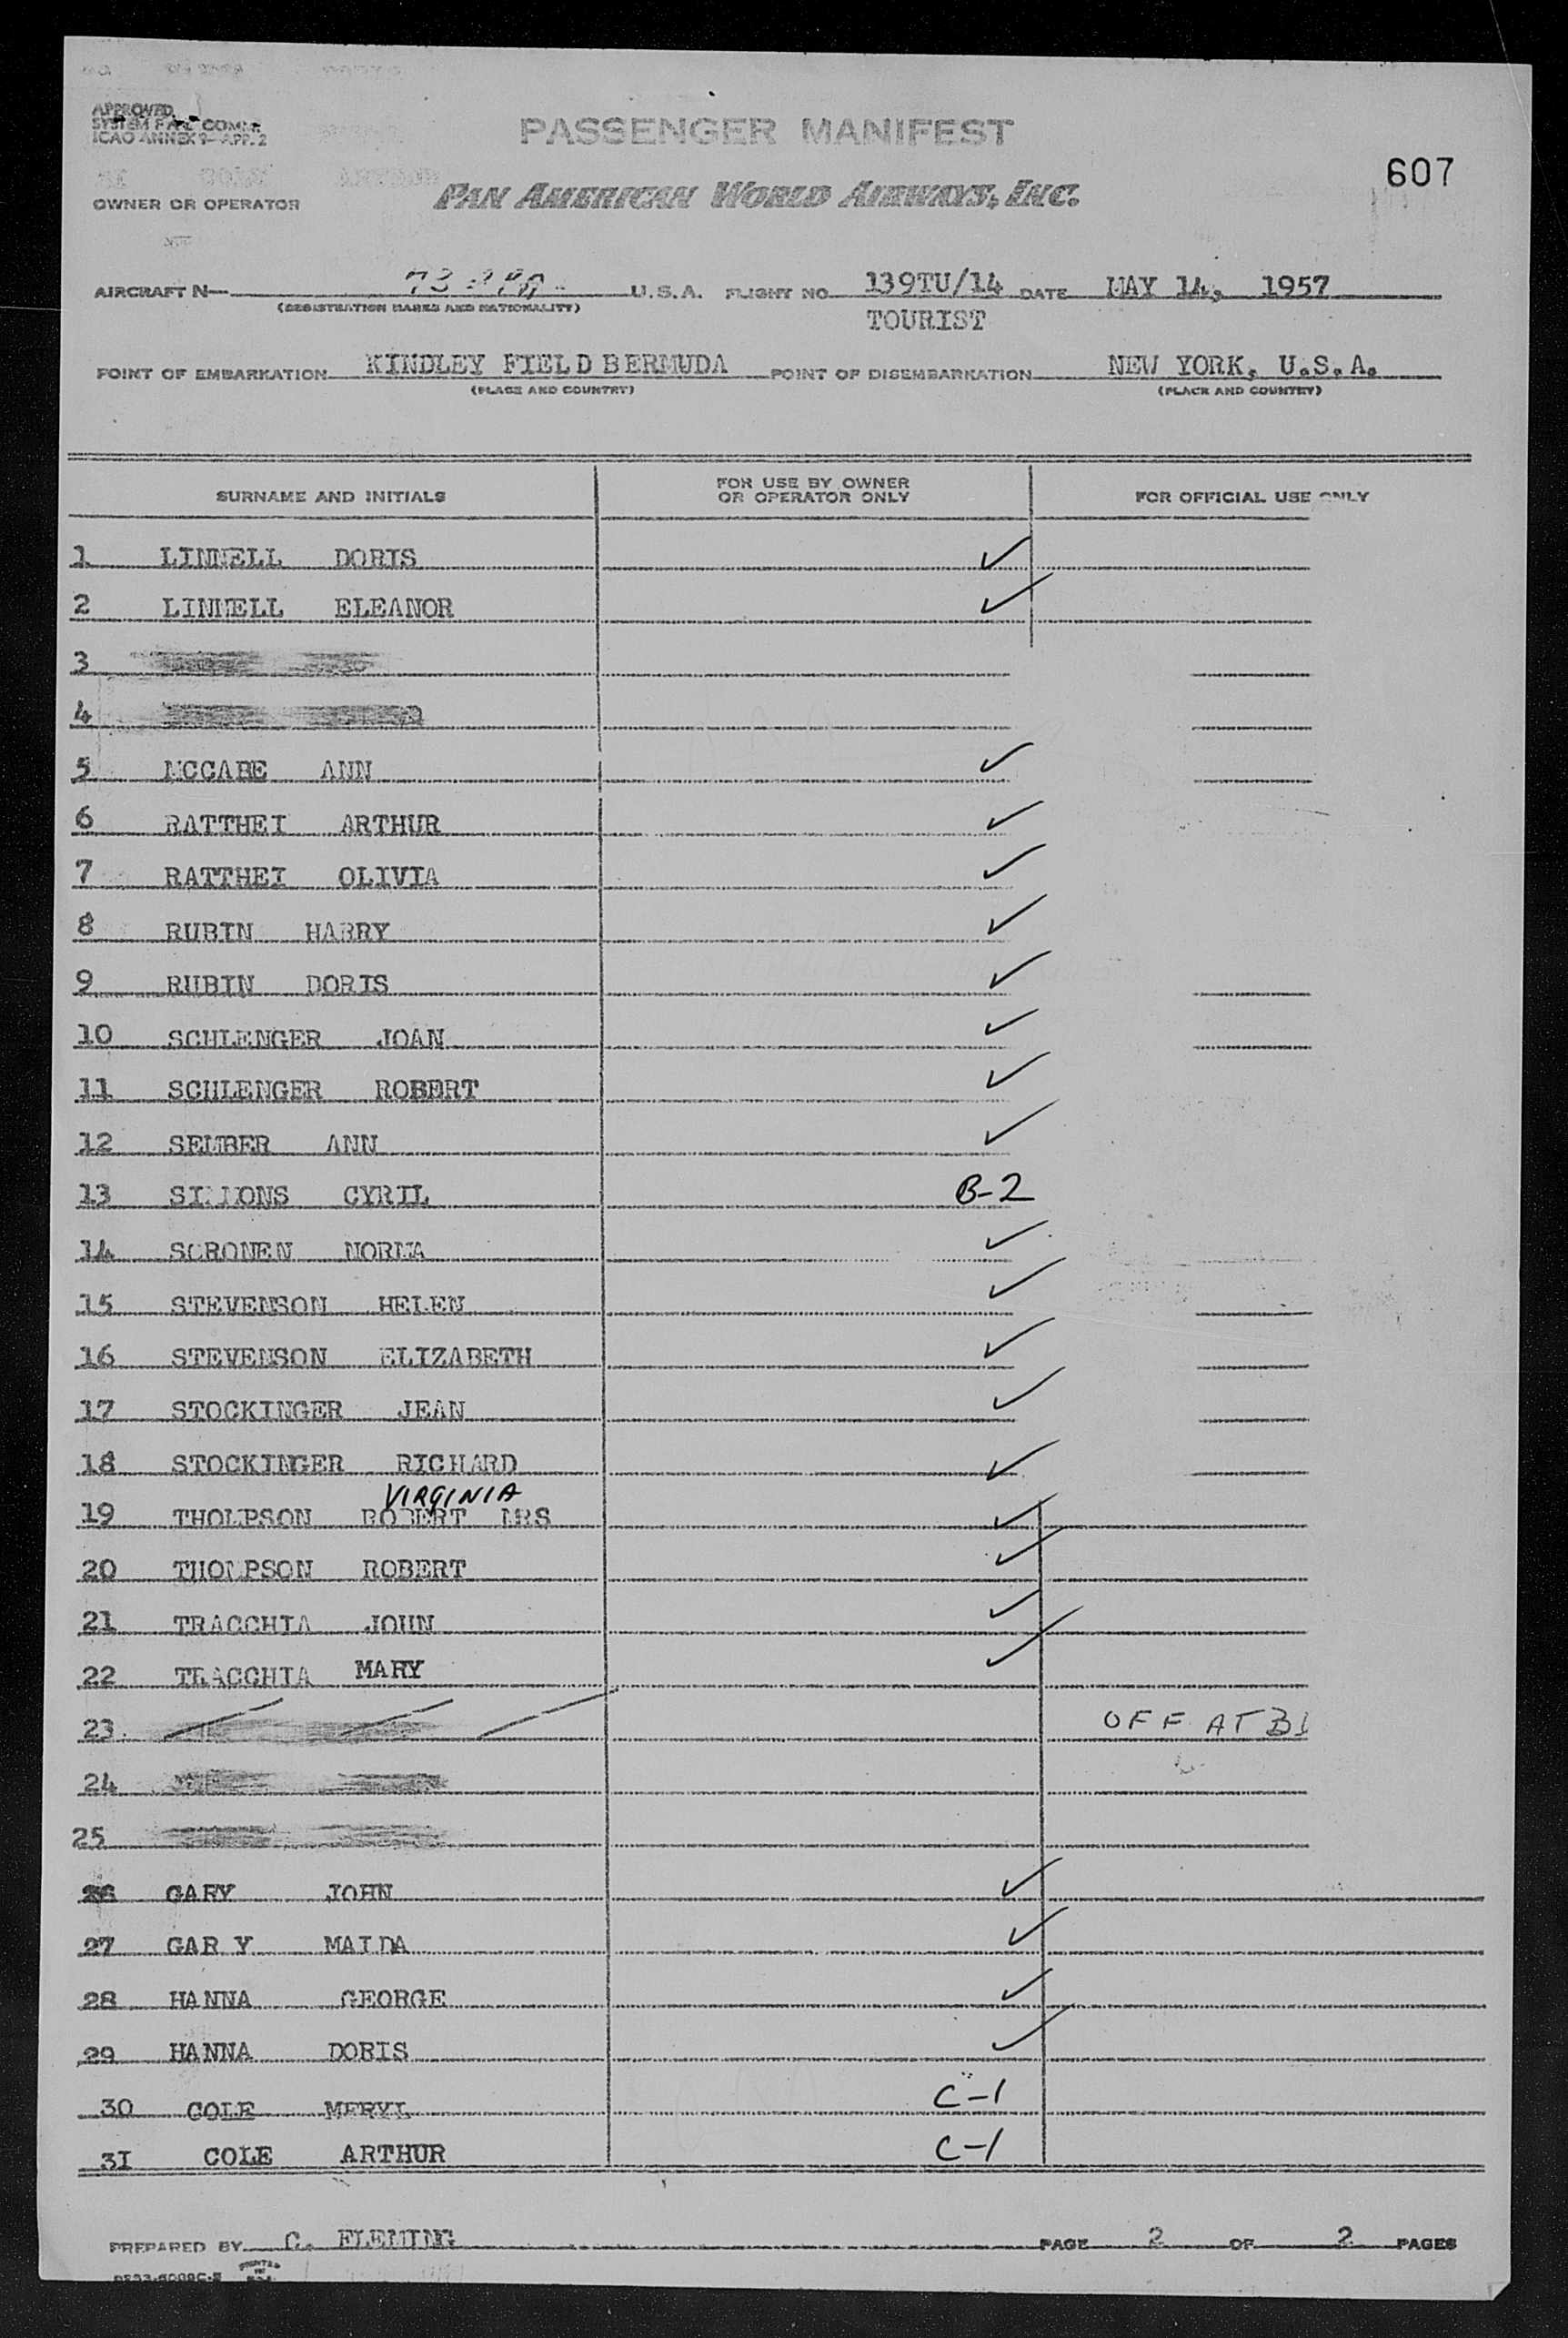 APPROVED
ICAO ANNEX 9-APP. 2
PASSENGER MANIFEST
607
OWNER OR OPERATOR
PAN AMERICAN WORLD AIRWAYS, INC.
AIRCRAFT N— U.S.A. FLIGHT NO. 139TU/14 DATE MAY 14, 1957
(REGISTRATION MARKS AND NATIONALITY)
TOURIST
POINT OF EMBARKATION KINDLEY FIELD BERMUDA POINT OF DISEMBARKATION NEW YORK, U.S.A.
(PLACE AND COUNTRY) (PLACE AND COUNTRY)
SURNAME AND INITIALS FOR USE BY OWNER OR OPERATOR ONLY FOR OFFICIAL USE ONLY
1 LINNELL DORIS ✓
2 LINNELL ELEANOR ✓
3
4
5 MCCABE ANN ✓
6 RATTHEI ARTHUR ✓
7 RATTHEI OLIVIA ✓
8 RUBIN HARRY ✓
9 RUBIN DORIS ✓
10 SCHLENGER JOAN ✓
11 SCHLENGER ROBERT ✓
12 SEMBER ANN ✓
13 SIMMONS CYRIL B-2
14 SORONEN NORMA ✓
15 STEVENSON HELEN ✓
16 STEVENSON ELIZABETH ✓
17 STOCKINGER JEAN ✓
18 STOCKINGER RICHARD ✓
VIRGINIA
19 THOMPSON ROBERT MRS ✓
20 THOMPSON ROBERT ✓
21 TRACCHIA JOHN ✓
22 TRACCHIA MARY ✓
23 OFF AT
24
25
26 GARY JOHN ✓
27 GAR Y MAIDA ✓
28 HANNA GEORGE ✓
29 HANNA DORIS ✓
30 COLE MERYL C-1
31 COLE ARTHUR C-1
PREPARED BY C. FLEMING PAGE 2 OF 2 PAGES